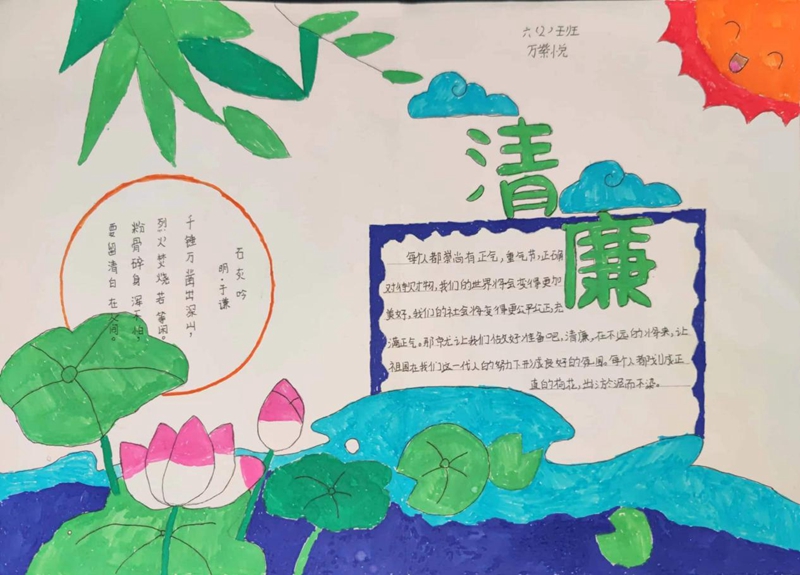 六(2)班
万紫悦
清
廉
石灰吟
明·于谦
千锤万凿出深山,
烈火焚烧若等闲。
粉骨碎身浑不怕,
要留清白在人间。
每人都崇尚有正气,重气节,正确
对待财物,我们的世界将会变得更加
美好,我们的社会将变得更公平公正,充
满正气。那就让我们做好准备吧,清廉,在不远的将来,让
祖国在我们这一代人的努力下形成良好的氛围。每个人都成正
直的荷花,出淤泥而不染。